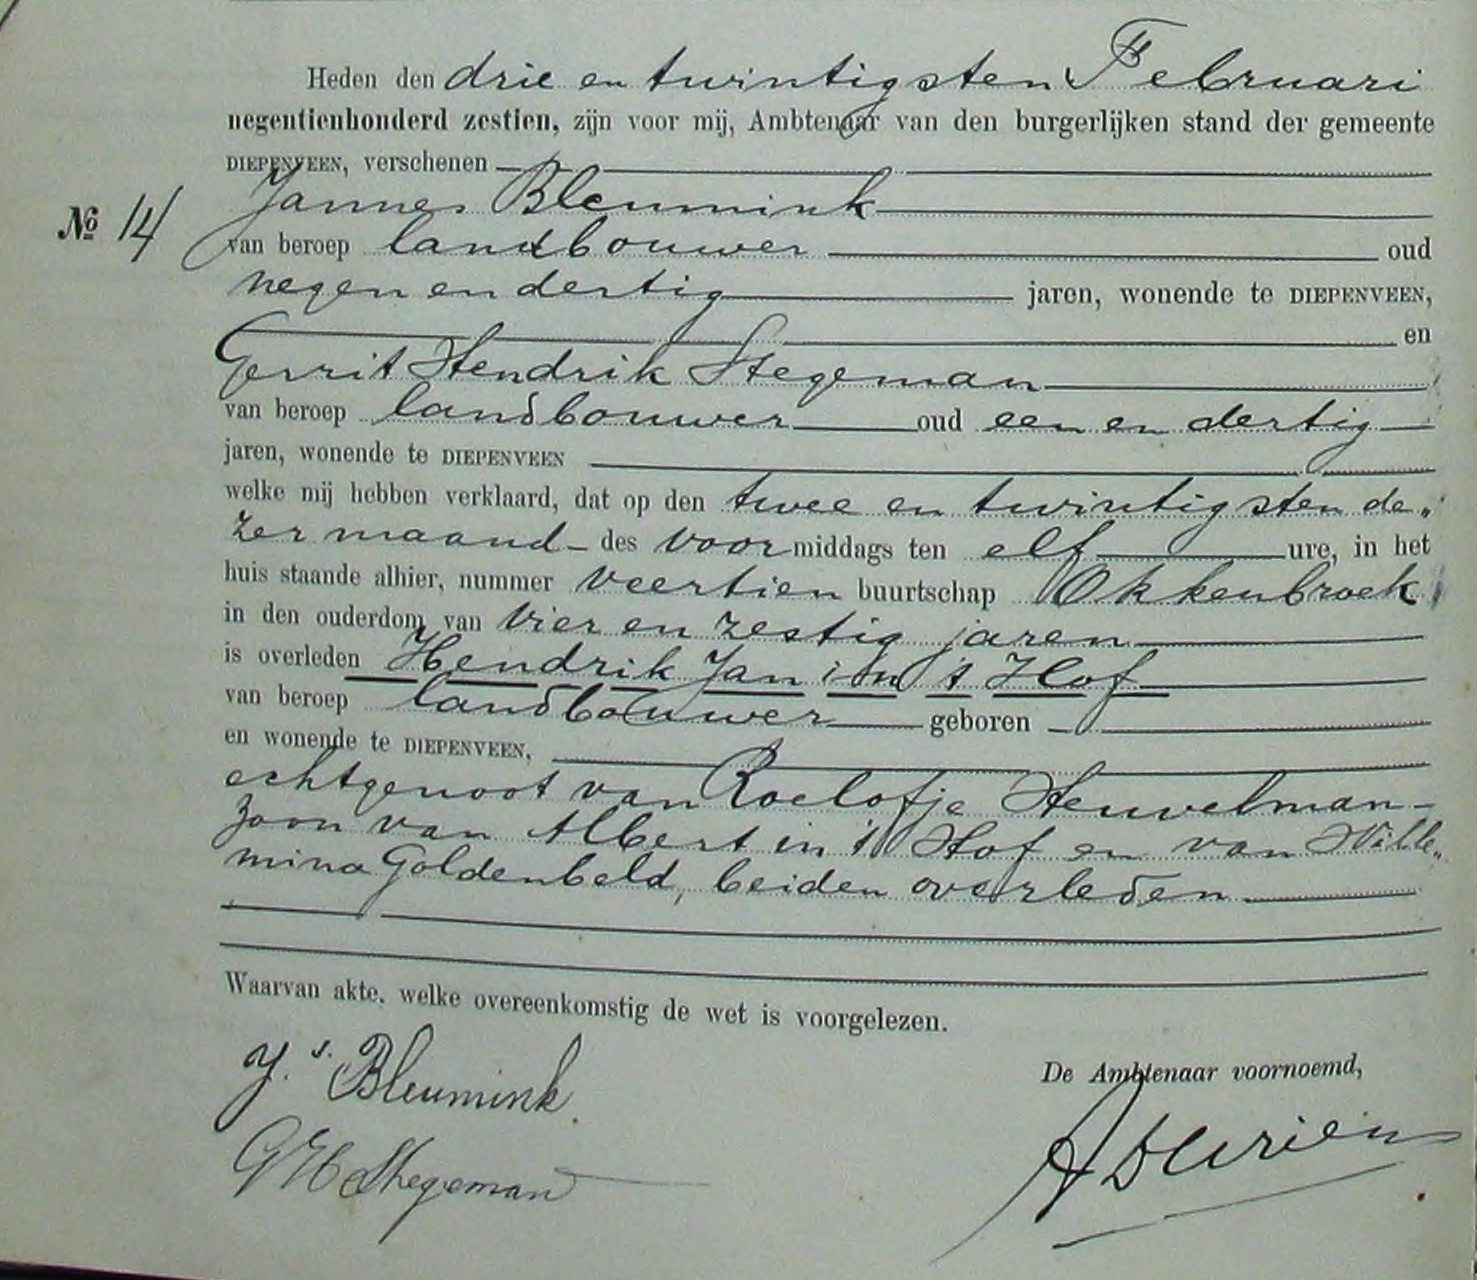 Heden den drie en twintigsten Februari
negentienhonderd zestien, zijn voor mij, Ambtenaar van den burgerlijken stand der gemeente
DIEPENVEEN, verschenen
Jannes Bleumink
№ 14
van beroep landbouwer oud
negen en dertig jaren, wonende te DIEPENVEEN,
en
Gerrit Hendrik Stegeman
van beroep landbouwer oud een en dertig
jaren, wonende te DIEPENVEEN
welke mij hebben verklaard, dat op den twee en twintigsten de„
zer maand des voormiddags ten elf ure, in het
huis staande alhier, nummer veertien buurtschap Okkenbroek
in den ouderdom van vier en zestig jaren
is overleden Hendrik Jan in 't Hof
van beroep landbouwer geboren
en wonende te DIEPENVEEN,
echtgenoot van Roelofje Heuvelman
zoon van Albert in 't Hof en van Wille„
mina Goldenbeld, beiden overleden
Waarvan akte, welke overeenkomstig de wet is voorgelezen.
J.s Bleumink
De Ambtenaar voornoemd,
GHStegeman